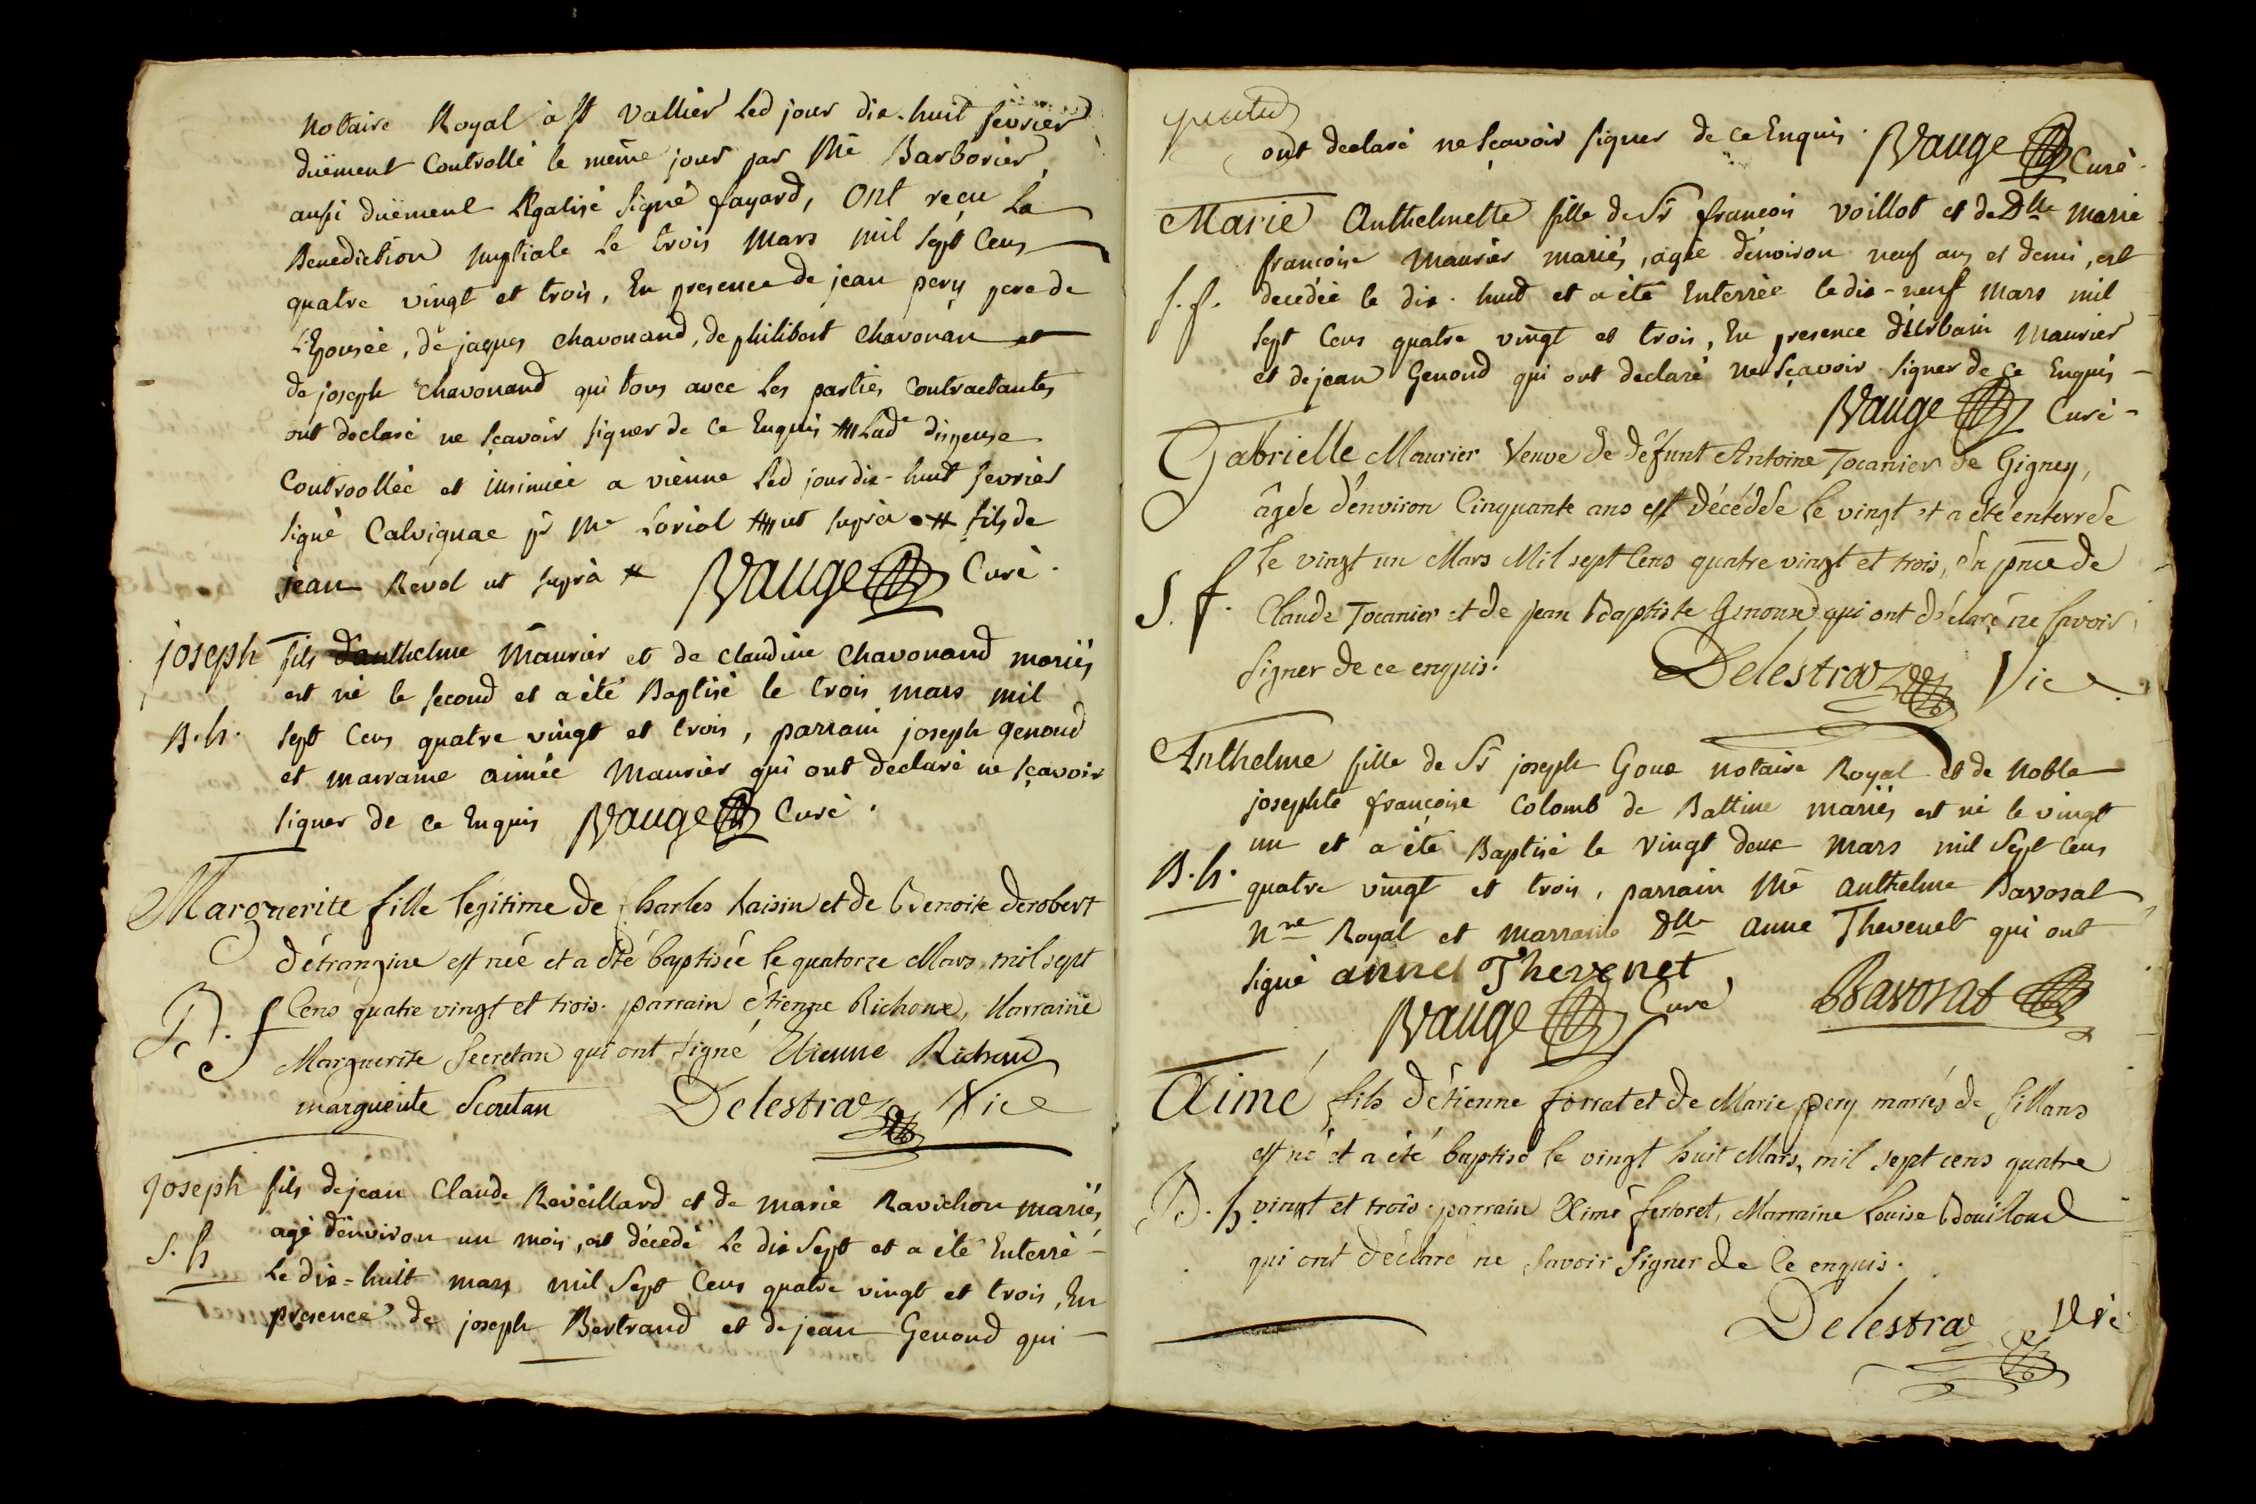 Notaire Royal à St Vallier Led jour dix-huit fevrier
duëment Controllé le même jour par Me Barborier
aussi duëment Légalisé Signé fayard, Ont reçu La
Benediction nuptiale Le trois Mars mil sept Cens
quatre vingt et trois, En presence de jean pery pere de
L'Epousée, de jaques chavouand, de philibert chavouan et
de joseph chavouand qui tous avec Les parties Contractantes
ont declaré ne sçavoir signer de Ce Enquis # Lade dispense
Controollée et insinuée a vienne Led jour dix-huit fevrier
Signé Calvignac pr Me Loriol # ut suprà # fils de
jean Revol ut suprà # BVauge Curé.
joseph fils d'anthelme Maurier et de claudine chavouand mariés
est né le second et a été Baptisé le trois mars mil
B.h. sept Cens quatre vingt et trois, parrain joseph genoud
et marraine aimée Maurier qui ont declaré ne sçavoir
signer de Ce Enquis BVauge Curé.
Marguerite fille légitime de Charles Raisin et de Benoite derobert
d'étrangine est née et a été baptisée le quatorze Mars, mil sept
B.f Cens quatre vingt et trois. parrain étienne Richoux, Marraine
Marguerite Secretan qui ont signé Etienne Richoud
marguerite Scrutan Delestraz Vic
joseph fils de jean Claude Reveillard et de marie Ravichon mariés,
agé d'environ un mois, est décédé Le dix sept et a été Enterré -
S.h Le dix-huit mars mil Sept Cens quatre vingt et trois, En
presence de joseph Bertrand et de jean Genoud qui -
ont declaré ne Sçavoir signer de Ce Enquis. BVauge Curé.
Marie Anthelmette fille de Sr françois Voillot et de Dlle Marie
françoise Maurier mariés, agée d'environ neuf ans et demi, est
S.f. decédée le dix-huit et a été Enterrée le dix-neuf Mars mil
Sept Cens quatre vingt et trois, En presence d'Urbain Maurier
et de jean Genoud qui ont declaré ne Sçavoir signer de Ce Enquis -
BVauge Curé -
Gabrielle Maurier Veuve de défunt Antoine Tocanier de Gigney,
âgée d'environ Cinquante ans est décédée Le vingt et a été enterrée
Le vingt un Mars Mil sept Cens quatre vingt et trois, En pnce de
S.f. Claude Tocanier et de Jean Baptiste Genoud qui ont déclaré ne savoir
signer de ce enquis. Delestraz Vic
Anthelme fille de Sr joseph Goux notaire Royal et de Noble
josephte françoise Colomb de Battine mariés est né le vingt
un et a été Baptisé le vingt deux Mars mil Sept Cens
B.h. quatre vingt et trois, parrain Me anthelme Bavosat
Nre Royal et marraine Dlle anne Thevenet qui ont
signé anne Thevenet
BVauge Curé Bavosat
Aimé fils d'étienne forrat et de Marie pery mariés de Sillans
est né et a été baptisé le vingt huit Mars, mil sept cens quatre
B.h. vingt et trois. parrain Aimé ferloret, Marraine Louise Bouiloud
qui ont déclaré ne savoir signer de Ce enquis.
Delestraz Vic